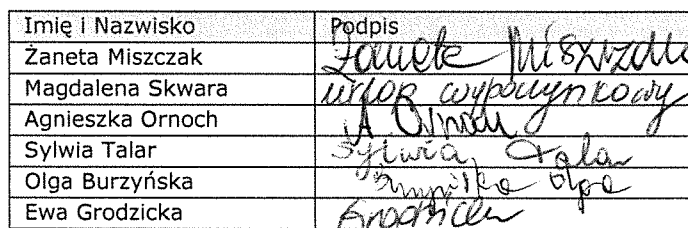 Imię i Nazwisko Podpis
Żaneta Miszczak Żaneta Miszczak
Magdalena Skwara urlop wypoczynkowy
Agnieszka Ornoch A Ornoch
Sylwia Talar Sylwia Talar
Olga Burzyńska Burzyńska Olga
Ewa Grodzicka Grodzicka